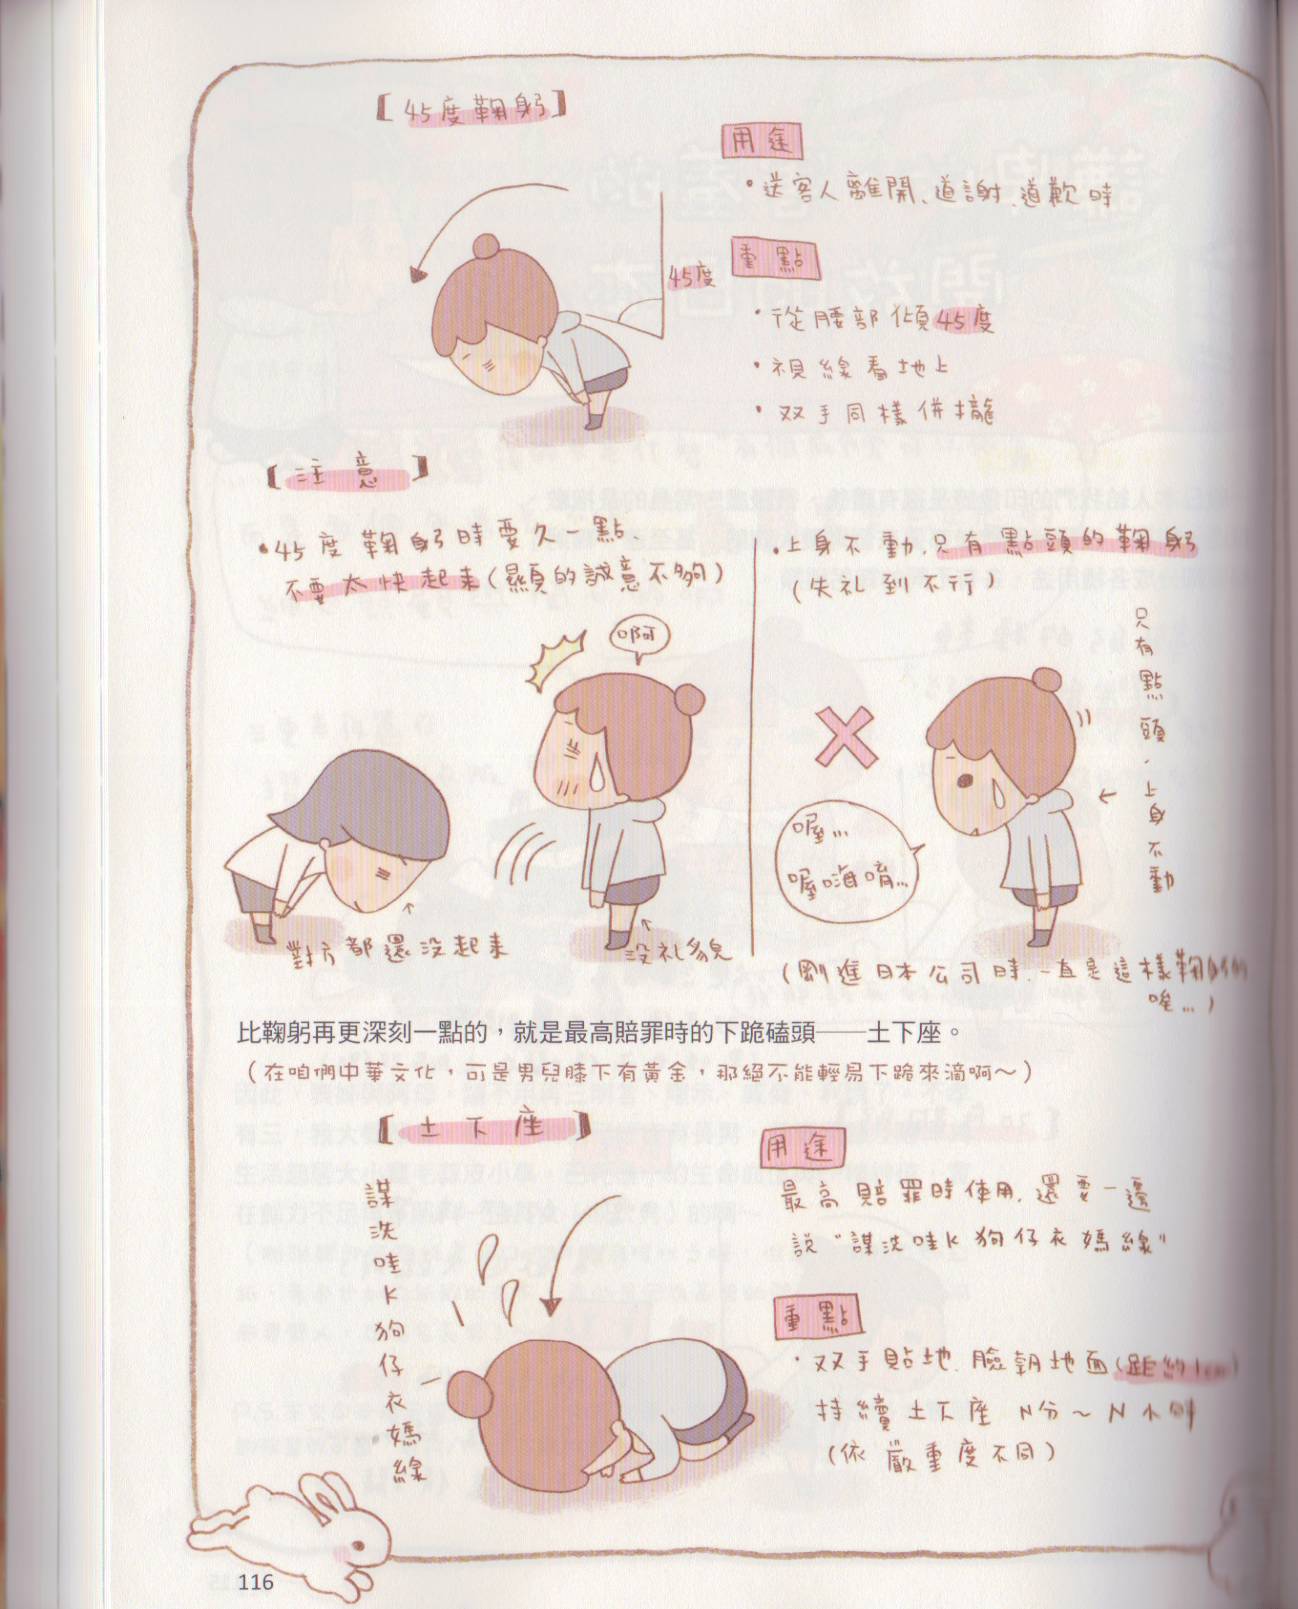 【45度鞠躬】
用途
•送客人離開、道謝、道歉時
45度
重點
•從腰部傾45度
•視線看地上
•双手同樣併攏
【注意】
•45度鞠躬時要久一點
不要太快起來(顯的誠意不夠)
•上身不動,只有點頭的鞠躬
(失礼到不行)
啊
只有點頭,上身不動
喔…
喔嗨唷…
對方都還沒起來
沒礼貌
(剛進日本公司時,一直是這樣鞠躬的
唉…)
比鞠躬再更深刻一點的,就是最高賠罪時的下跪磕頭——土下座。
(在咱們中華文化,可是男兒膝下有黃金,那絕不能輕易下跪來滴啊~)
【土下座】
謀洗哇K狗仔衣媽線
用途
最高賠罪時使用,還要一邊
說"謀洗哇K狗仔衣媽線"
重點
•双手貼地.臉朝地面(距約1cm)
持續土下座 N分~N小時
(依嚴重度不同)
116